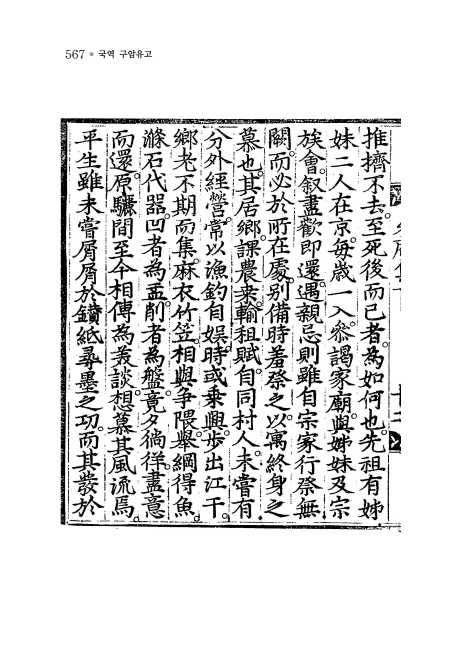 567 ● 국역 구암유고
推擠不去至死後而已者為如何也先祖有姊
妹二人在京每歲一入叅謁家廟與姊妹及宗
族會叙盡歡即還遇親忌則雖自宗家行祭無
闕而必於所在處別備時羞祭之以寓終身之
慕也其居鄉課農桒輸租賦自同村人未嘗有
分外經營常以漁釣自娛時或乗興步出江干
鄉老不期而集麻衣竹笠相與爭隈舉綱得魚
滌石代器凹者為盂削者為盤竟夕徜徉盡意
而還原驥間至今相傳為美談想慕其風流焉
平生雖未嘗屑屑於鑽紙尋墨之功而其發於